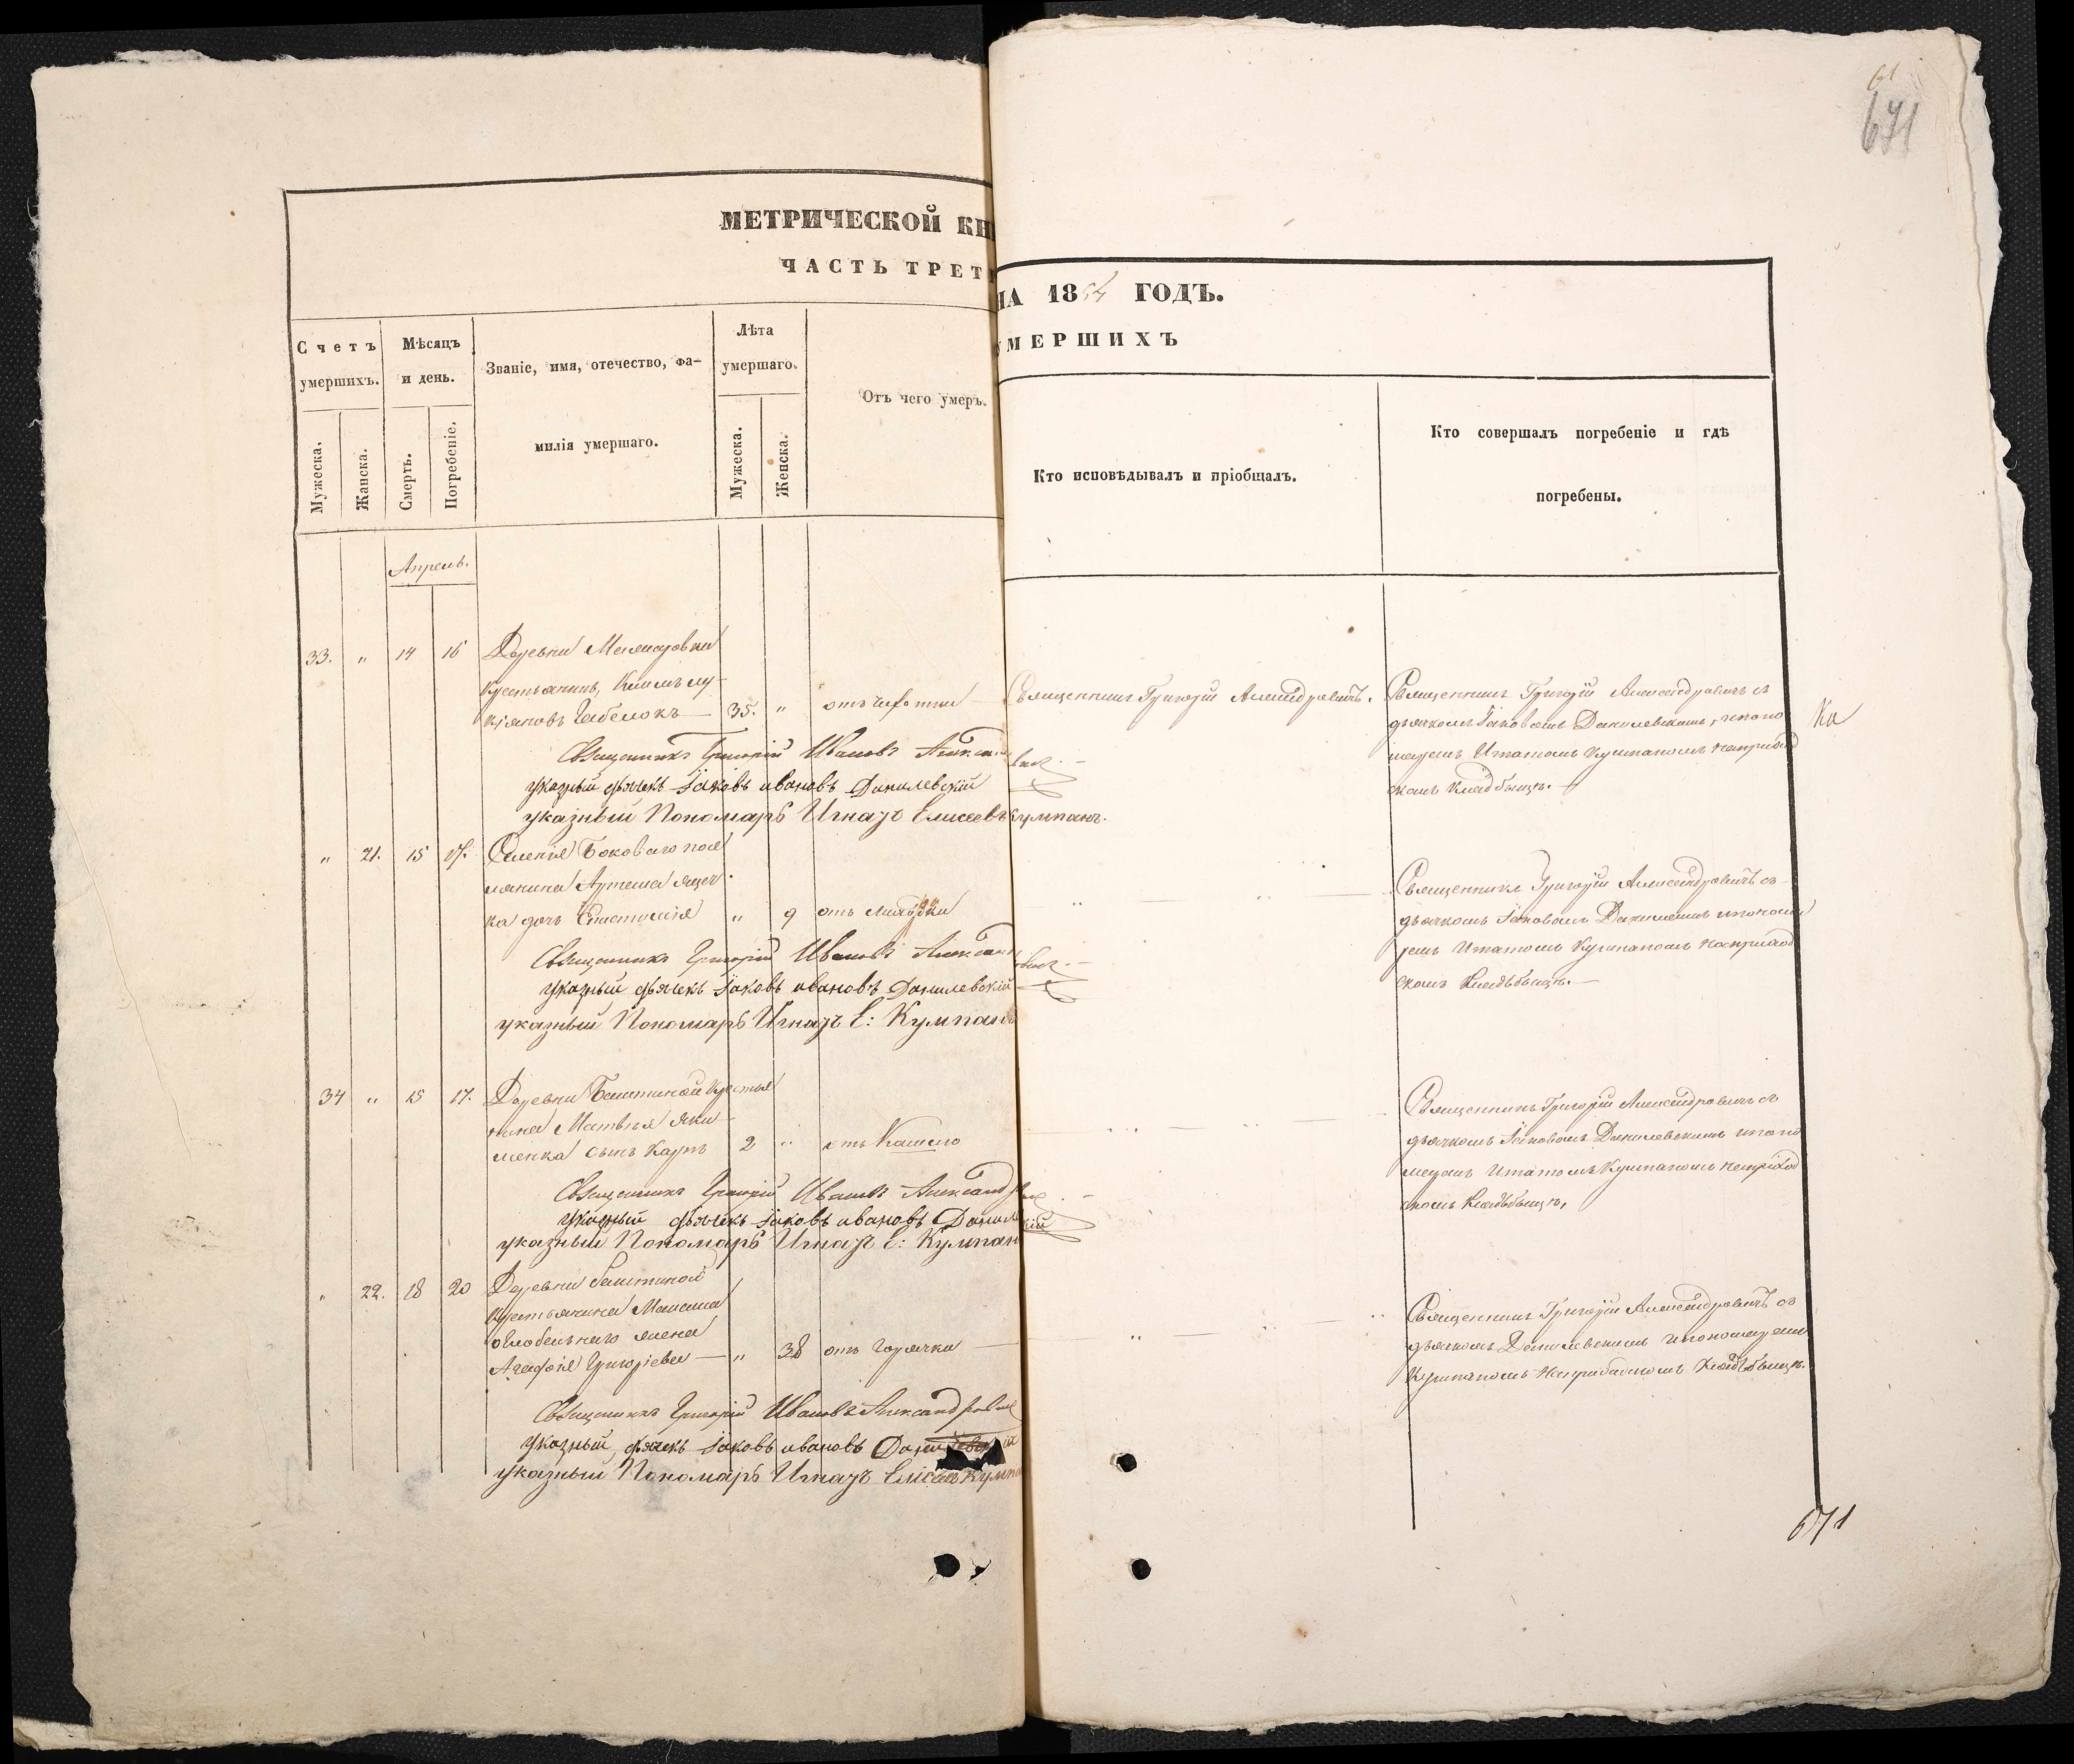 61
671
МЕТРИЧЕСКОЙ КН
ЧАСТЬ ТРЕТ
НА 1854 ГОДЪ.
УМЕРШИХЪ
Счетъ умершихъ.
Мужеска.
Жанска.
Мѣсяцъ и день.
Смерть.
Погребеніе.
Званіе, имя, отечество, фа-
милія умершаго.
Лѣта умершаго.
Мужеска.
Женска.
Отъ чего умеръ.
Кто исповѣдывалъ и пріобщалъ.
Кто совершалъ погребеніе и гдѣ
погребены.
Апрель.
33. " 14 16 Деревни
крестьянинъ,
35. " отъ чахотки Священникъ Григорій Александровичъ.
Священникъ Григорій Александровичъ съ
дьячкомъ Іаковомъ Данилевскимъ, и поно
маремъ Игнатомъ Кумпаномъ на приход
скомъ кладбищѣ.
На
Священникъ Григорій Ивановъ Александровичъ
указный дьячекъ Іаковъ Ивановъ Данилевскій
указный Пономарь Игнатъ Елисеевъ Кумпанъ.
" 21. 15 17. Селенія Боковаго посе
лянина
ка дочь " 9 отъ
Священникъ Григорій Александровичъ съ
дьячкомъ Іаковомъ и понома
ремъ Игнатомъ Кумпаномъ на приход
скомъ кладбищѣ.
Священникъ Григорій Ивановъ
указный дьячекъ Іаковъ Ивановъ Данилевскій
указный Пономарь Игнатъ Е: Кумпанъ
34 " 15 17. Деревни Баштиной крестья
нина Матвѣя Яки
менка сынъ Карпъ 2 " отъ Кашлю
Священникъ Григорій Александровичъ съ
дьячкомъ Іаковомъ Данилевскимъ и поно
маремъ Игнатомъ Кумпаномъ на приход
скомъ кладбищѣ.
Священникъ Григорій Ивановъ Александровичъ
указный дьячекъ Іаковъ Ивановъ
указный Пономарь Игнатъ Е: Кумпан
" 22. 18 20 Деревни Баштиной
крестьянина
жена
Агафія Григоріева " 38 отъ горячки
Священникъ Григорій Александровичъ съ
дьячкомъ Данилевскимъ и пономаремъ
Кумпаномъ на приходскомъ кладбищѣ.
Священникъ Григорій Ивановъ Александровичъ
указный дьячекъ Іаковъ Ивановъ Данилевскій
указный Пономарь Игнатъ
671